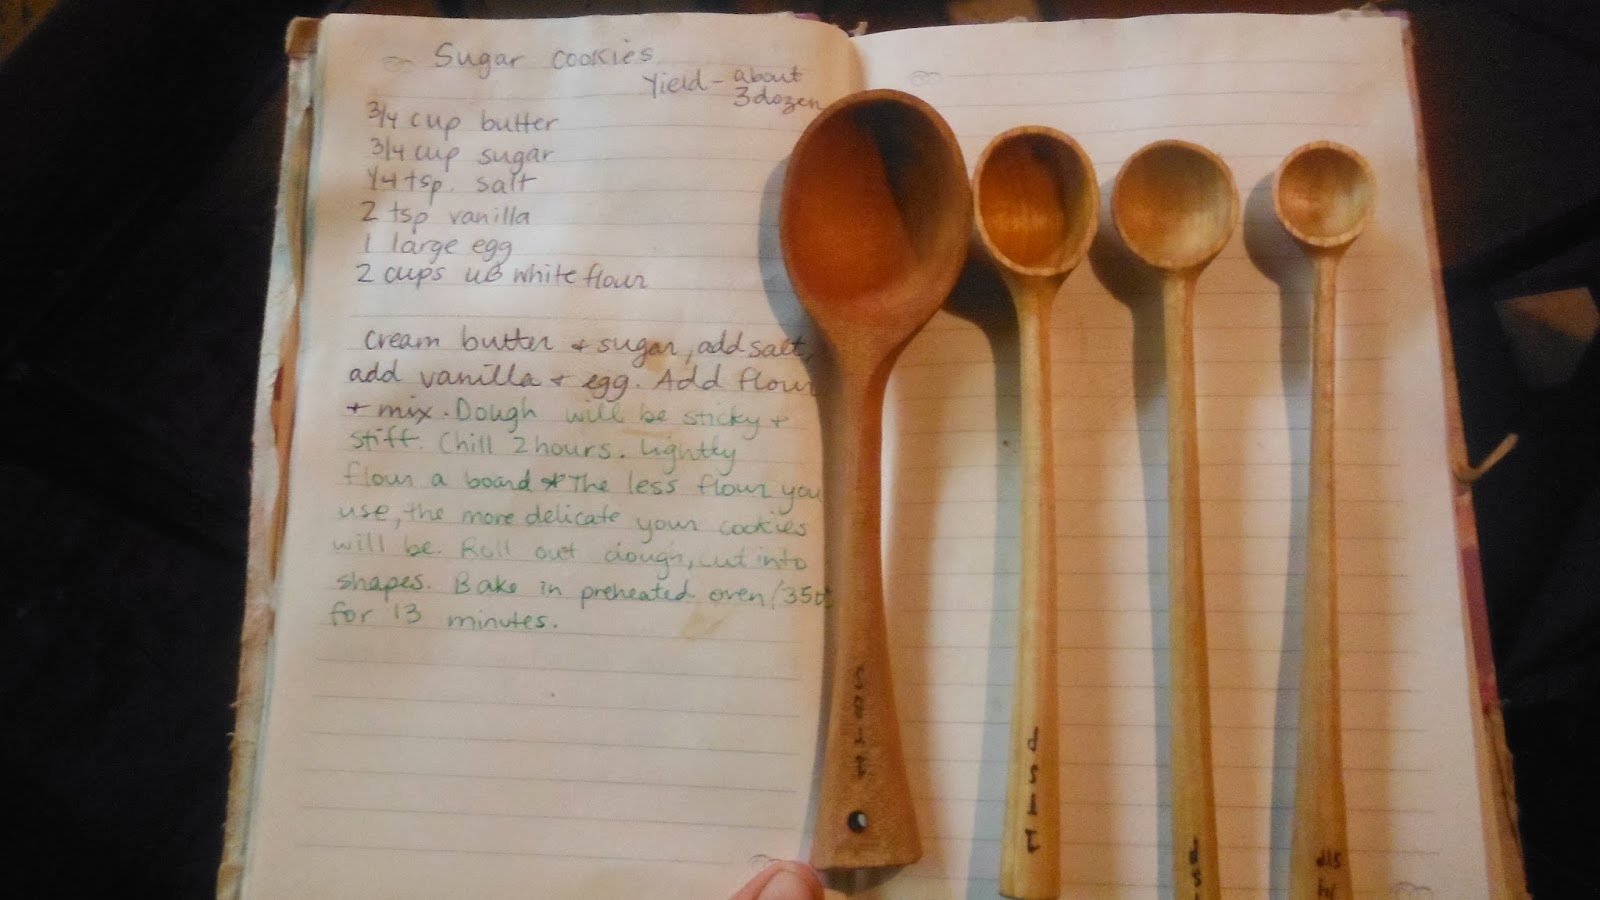 Sugar cookies
Yield - about
3 dozen
3/4 cup butter
3/4 cup sugar
1/4 tsp. salt
2 tsp vanilla
1 large egg
2 cups UB white flour
Cream butter + sugar, add salt,
add vanilla + egg. Add flour
+ mix. Dough will be sticky +
stiff. Chill 2 hours. Lightly
flour a board * The less flour you
use, the more delicate your cookies
will be. Roll out dough, cut into
shapes. Bake in preheated oven (350°
for 13 minutes.